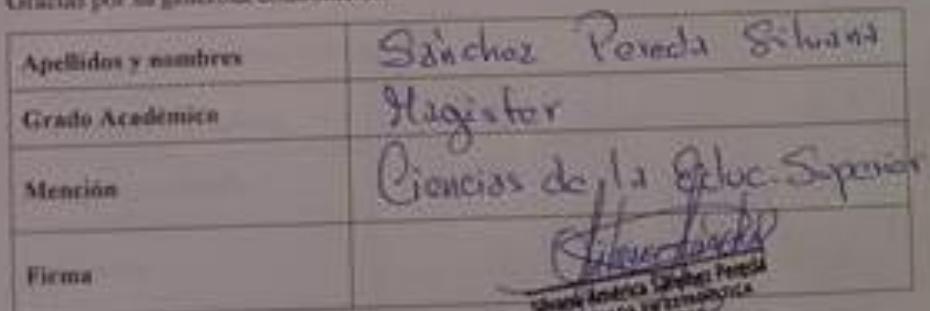 Gracias por su generosa
Apellidos y nombres Sánchez Pereda Silvana
Grado Académico Magister
Mención Ciencias de la Educ. Superior
Firma
Silvana América Sánchez Pereda